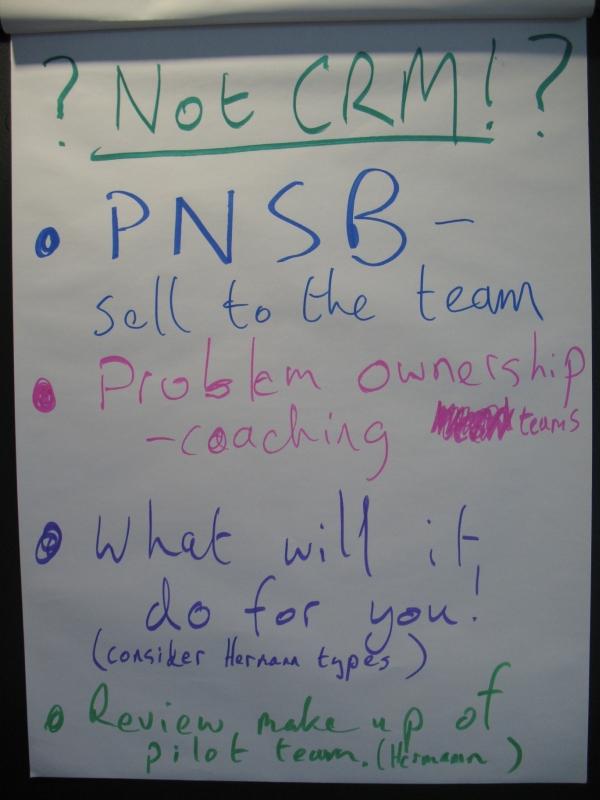 ? Not CRM!?
PNSB-
sell to the team
Problem ownership
-coaching teams
What will it
do for you!
(consider Hermann types)
Review make up of
pilot team. (Hermann)